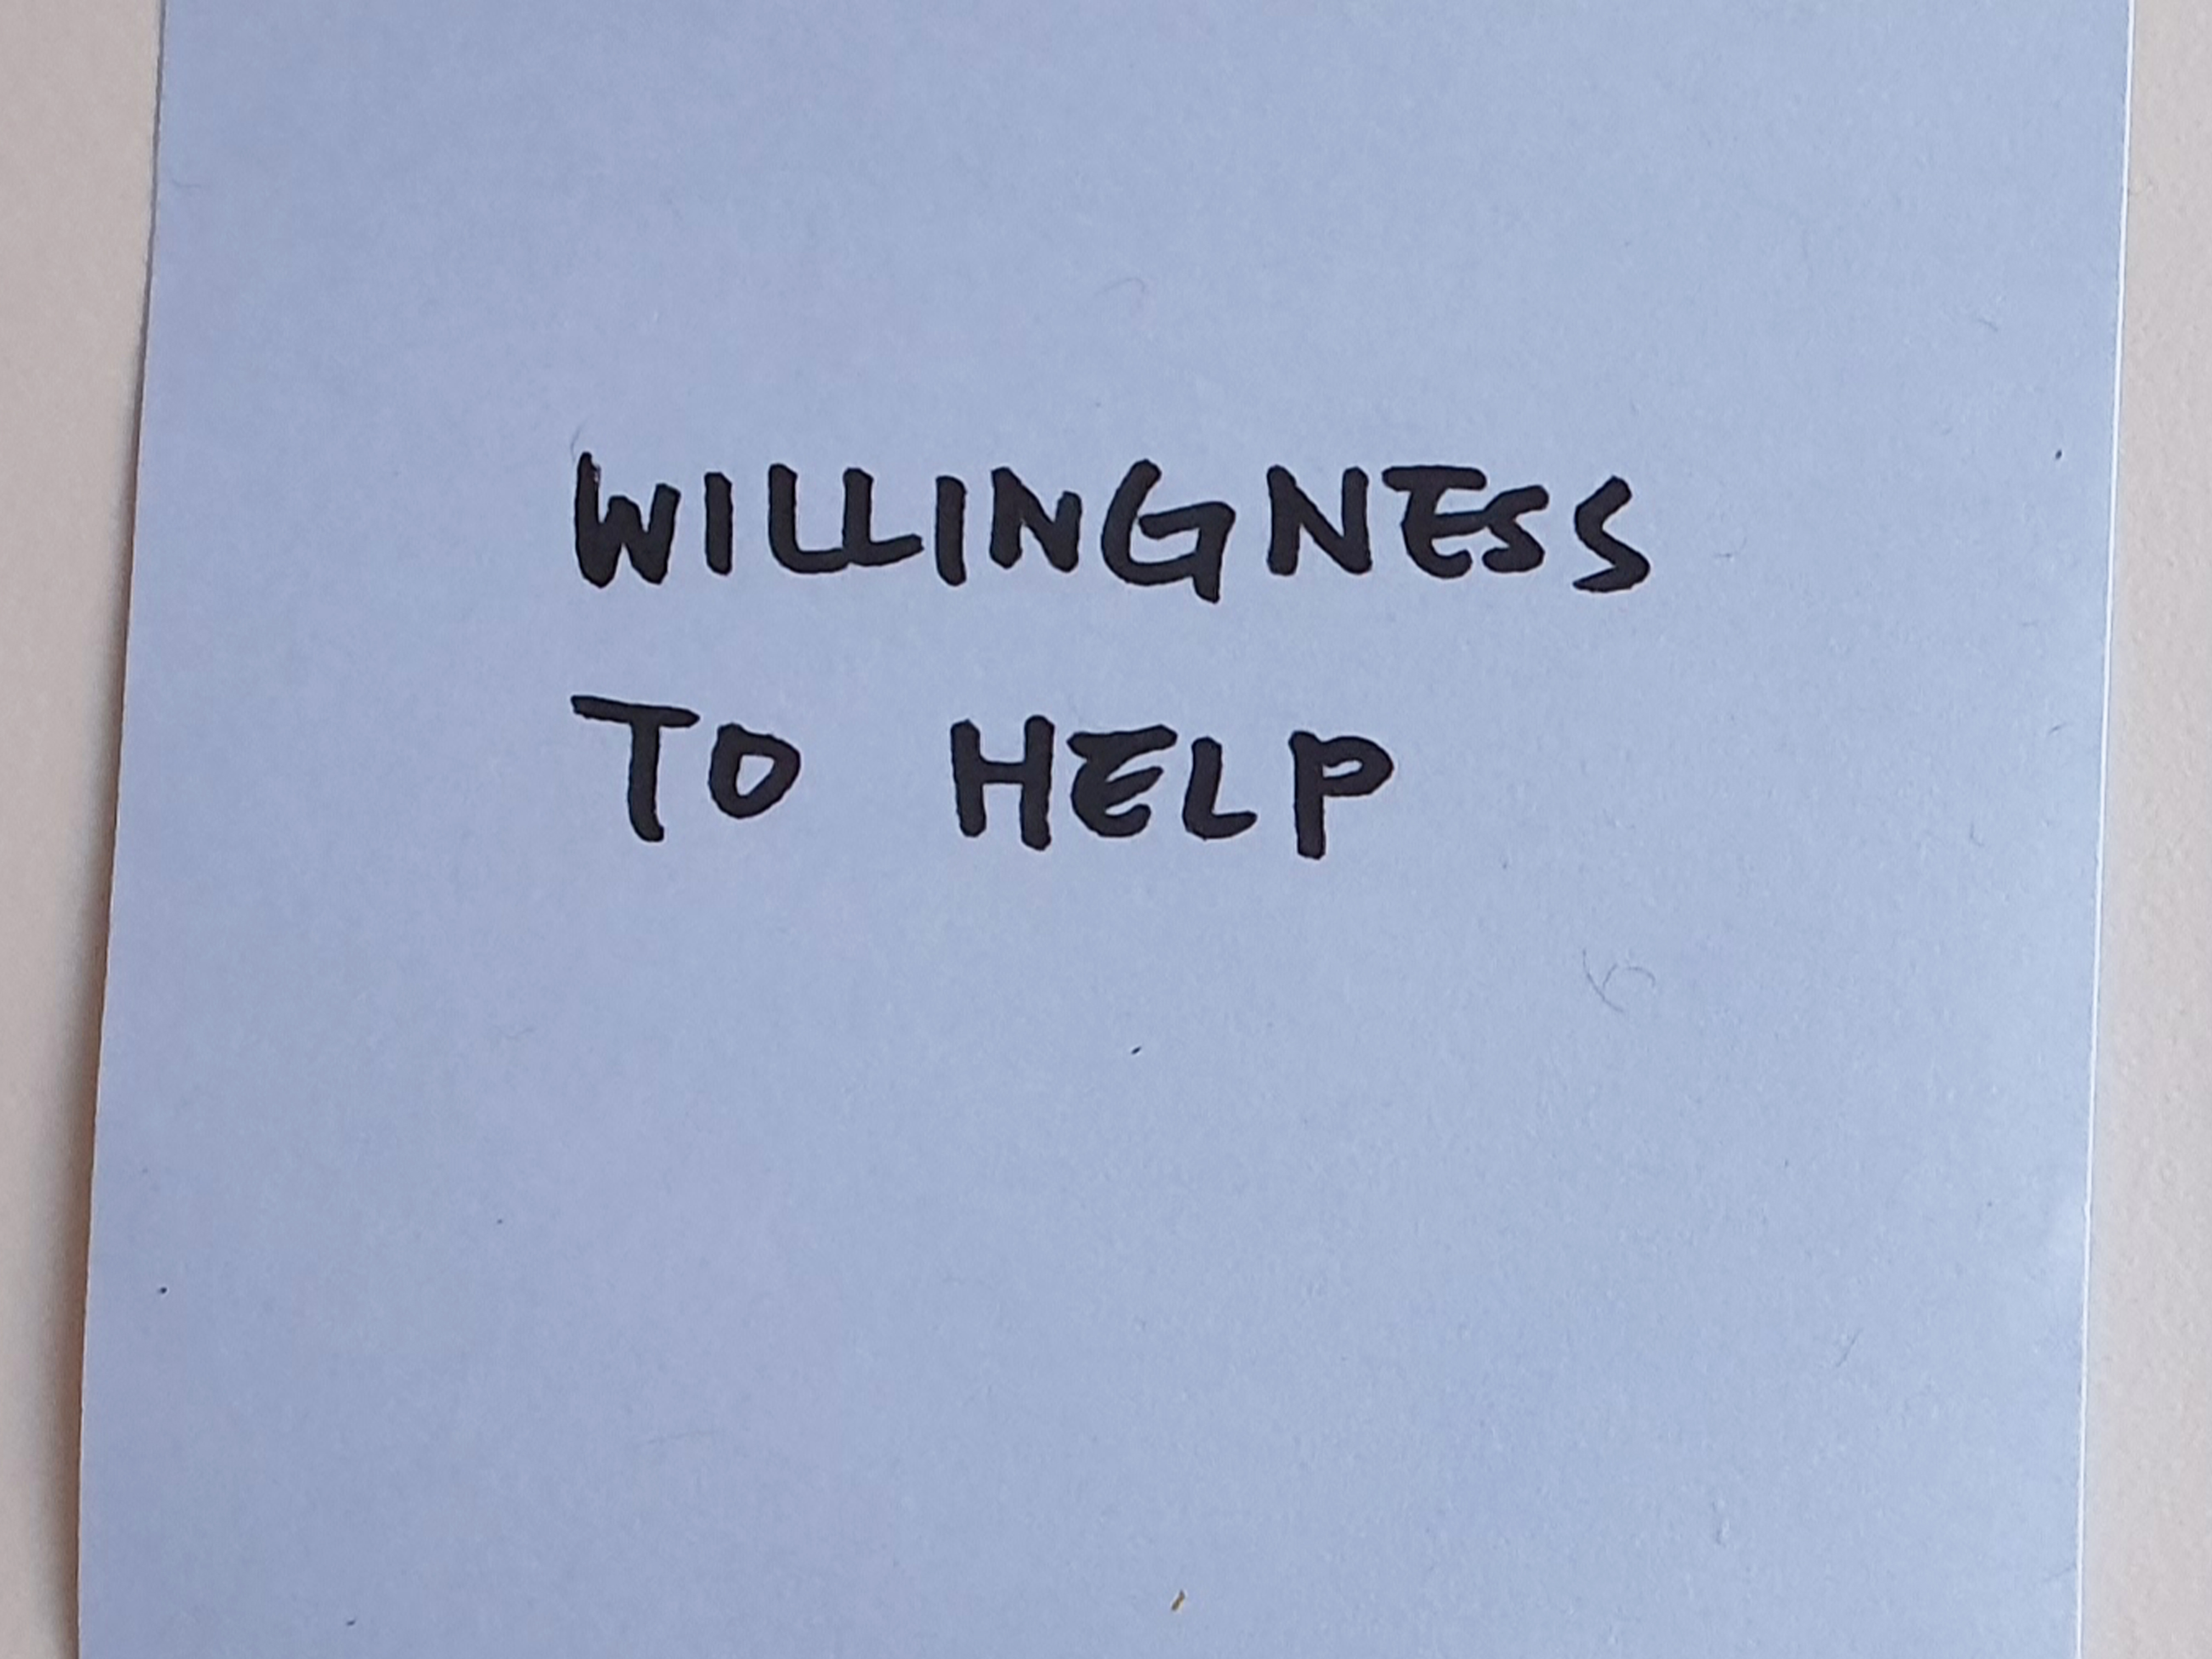 WILLINGNESS
TO HELP